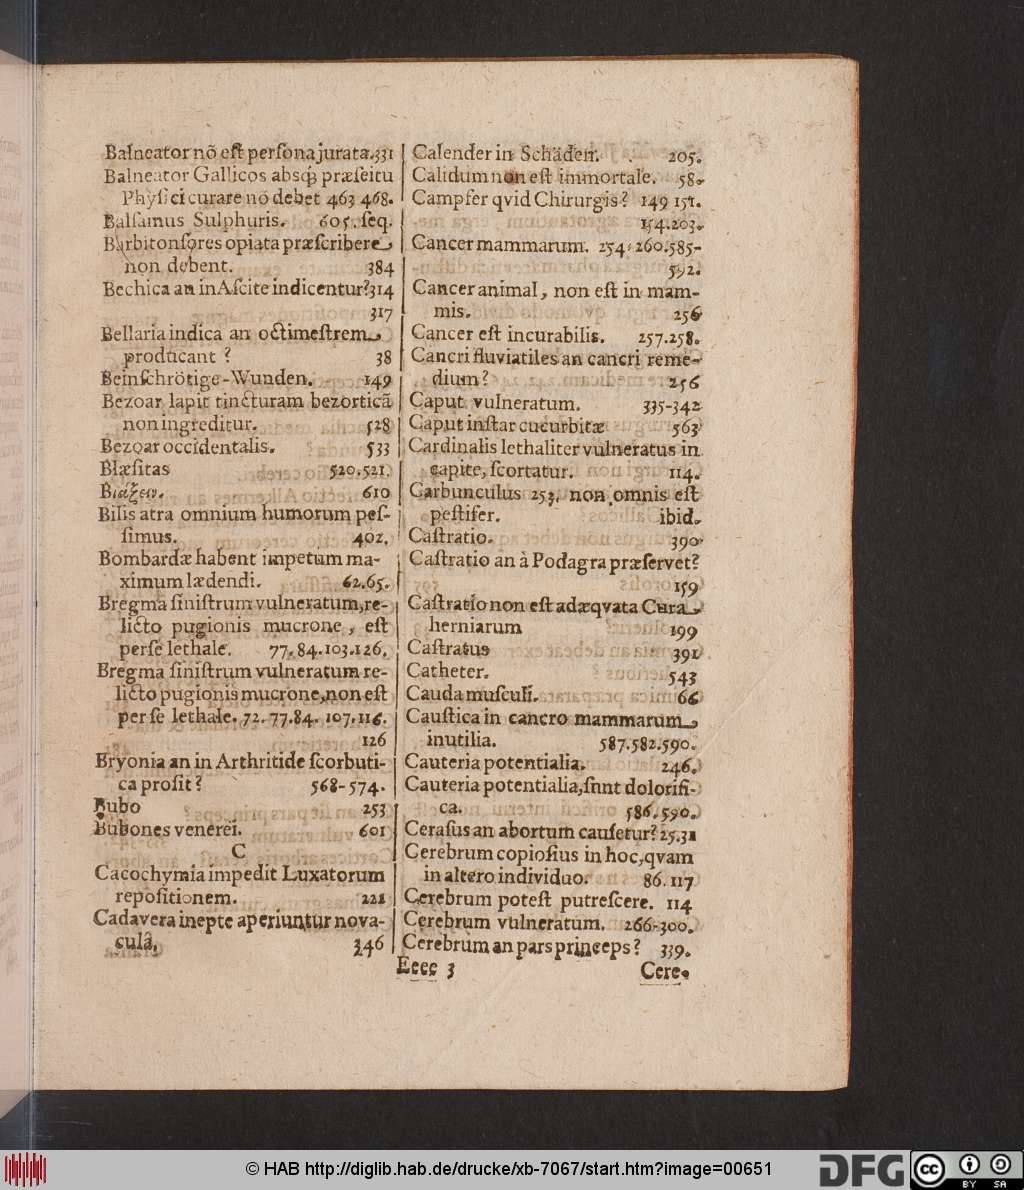 Balneator nõ eſt perſona jurata. 331
Balneator Gallicos absq́ꝫ præſeitu
Phyſici curare nõ debet 463 468.
Balſamus Sulphuris. 605. ſeq.
Barbitonſores opiata præſcribere
non debent. 384
Bechica an in Aſcite indicentur? 314
317
Bellaria indica an octimeſtrem
producant ? 38
Beinſchrötige-Wunden. 149
Bezoar lapit tincturam bezorticã
non ingreditur. 528
Bezoar occidentalis. 533
Blæſitas 520. 521.
Βιάζειν. 610
Bilis atra omnium humorum peſ-
ſimus. 402.
Bombardæ habent impetum ma-
ximum lædendi. 62. 65.
Bregma ſiniſtrum vulneratum, re-
licto pugionis mucrone, eſt
perſe lethale. 77. 84. 103. 126.
Bregma ſiniſtrum vulneratum re-
licto pugionis mucrone, non eſt
per ſe lethale. 72. 77. 84. 107. 116.
126
Bryonia an in Arthritide ſcorbuti-
ca proſit ? 568-574.
Bubo 253
Bubones venerei. 601
C
Cacochymia impedit Luxatorum
repoſitionem. 221
Cadavera inepte aperiuntur nova-
culâ. 346
Eeee 3
Calender in Schäden. 205.
Calidum non eſt immortale. 58.
Campfer qvid Chirurgis ? 149 151.
154. 203.
Cancer mammarum. 254. 260. 585-
592.
Cancer animal, non eſt in mam-
mis. 256
Cancer eſt incurabilis. 257. 258.
Cancri fluviatiles an cancri reme-
dium ? 256
Caput vulneratum. 335-342
Caput inſtar cucurbitæ 563
Cardinalis lethaliter vulneratus in
capite, ſcortatur. 114.
Carbunculus 253. non omnis eſt
peſtifer. ibid.
Caſtratio. 390
Caſtratio an à Podagra præſervet?
159
Caſtratio non eſt adæqvata Cura
herniarum 199
Caſtratus 391
Catheter. 543
Cauda muſculi. 66
Cauſtica in cancro mammarum
inutilia. 587. 582. 590.
Cauteria potentialia. 246.
Cauteria potentialia, ſunt dolorifi-
ca. 586. 590.
Ceraſus an abortum cauſetur? 25. 31
Cerebrum copioſius in hoc, qvam
in altero individuo. 86. 117
Cerebrum poteſt putreſcere. 114
Cerebrum vulneratum. 266-300.
Cerebrum an pars princeps ? 339.
Cere-
© HAB http://diglib.hab.de/drucke/xb-7067/start.htm?image=00651
DFG
cc
BY SA